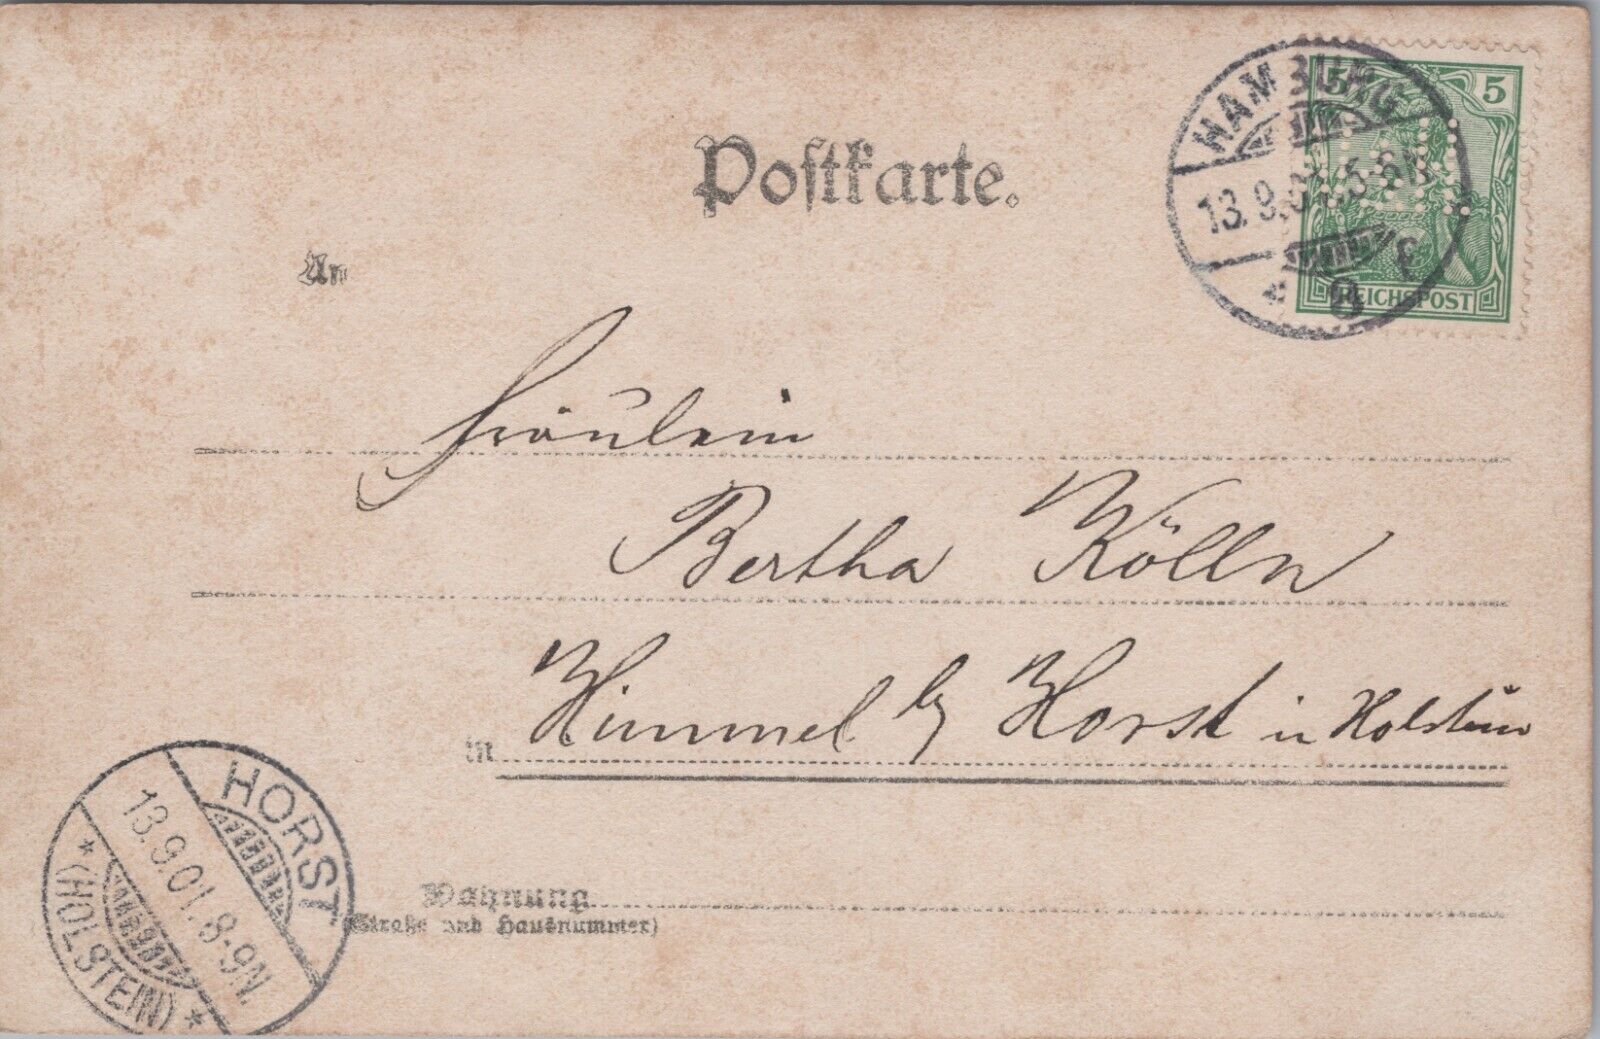 Postkarte.
HAMBURG
13.9.01. 5-6N
5 5
REICHSPOST
An
Fräulein
Bertha Kölln
in Himmel b/ Horst in Holstein
HORST
13.9.01. 8-9N.
* (HOLSTEIN) *
Wohnung
(Straße und Hausnummer)